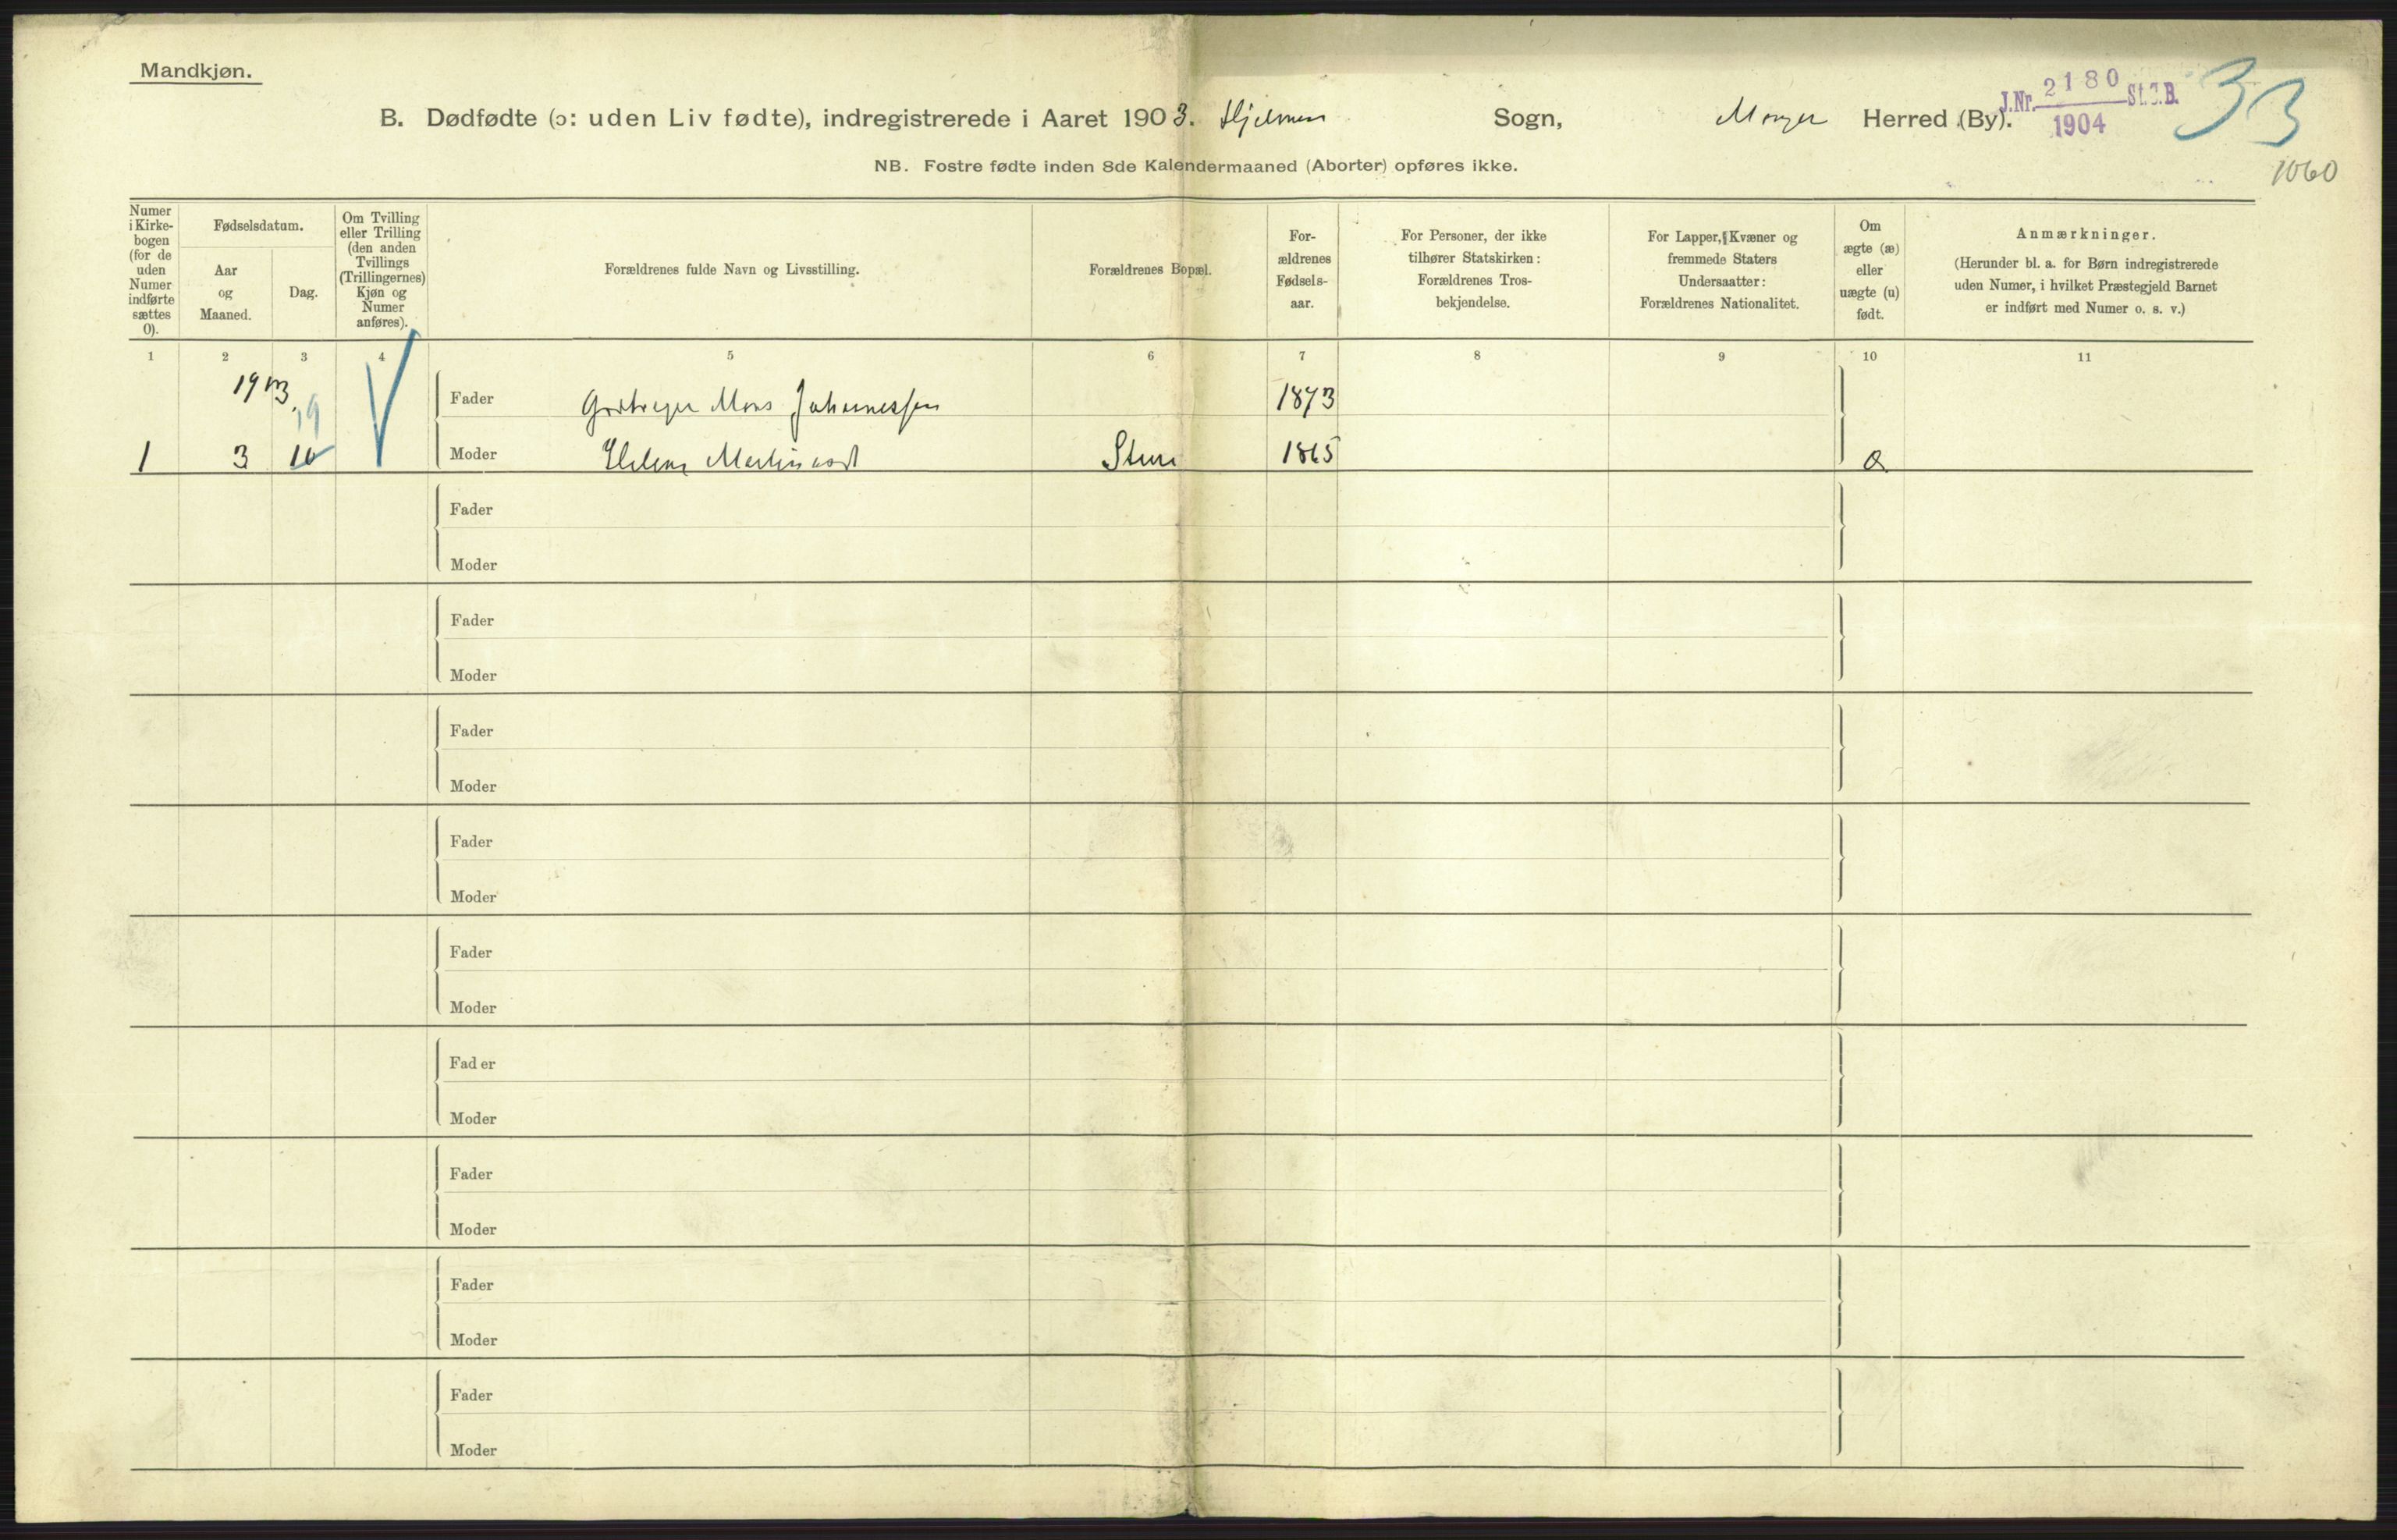 Mandkjøn.
B. Dødfødte (ɔ: uden Liv fødte), indregistrerede i Aaret 1903. Hjelmen Sogn, Manger Herred (By).
J.Nr. 2180 St.C.B.
1904
33
1060
NB. Fostre fødte inden 8de Kalendermaaned (Aborter) opføres ikke.
Numer
i Kirke-
bogen
(for de
uden
Numer
indførte
sættes
0).
Fødselsdatum.
Aar
og
Maaned.
Dag.
Om Tvilling
eller Trilling
(den anden
Tvillings
(Trillingernes)
Kjøn og
Numer
anføres).
Forældrenes fulde Navn og Livsstilling.
Forældrenes Bopæl.
For-
ældrenes
Fødsels-
aar.
For Personer, der ikke
tilhører Statskirken:
Forældrenes Tros-
bekjendelse.
For Lapper, Kvæner og
fremmede Staters
Undersaatter:
Forældrenes Nationalitet.
Om
ægte (æ)
eller
uægte (u)
født.
Anmærkninger.
(Herunder bl. a. for Børn indregistrerede
uden Numer, i hvilket Præstegjeld Barnet
er indført med Numer o. s. v.)
1 2 3 4 5 6 7 8 9 10 11
1903
19
Fader Mons Johannessen 1873
1 3 10 Moder Martinusd Sture 1865 æ
Fader
Moder
Fader
Moder
Fader
Moder
Fader
Moder
Fader
Moder
Fader
Moder
Fader
Moder
Fader
Moder
Fader
Moder